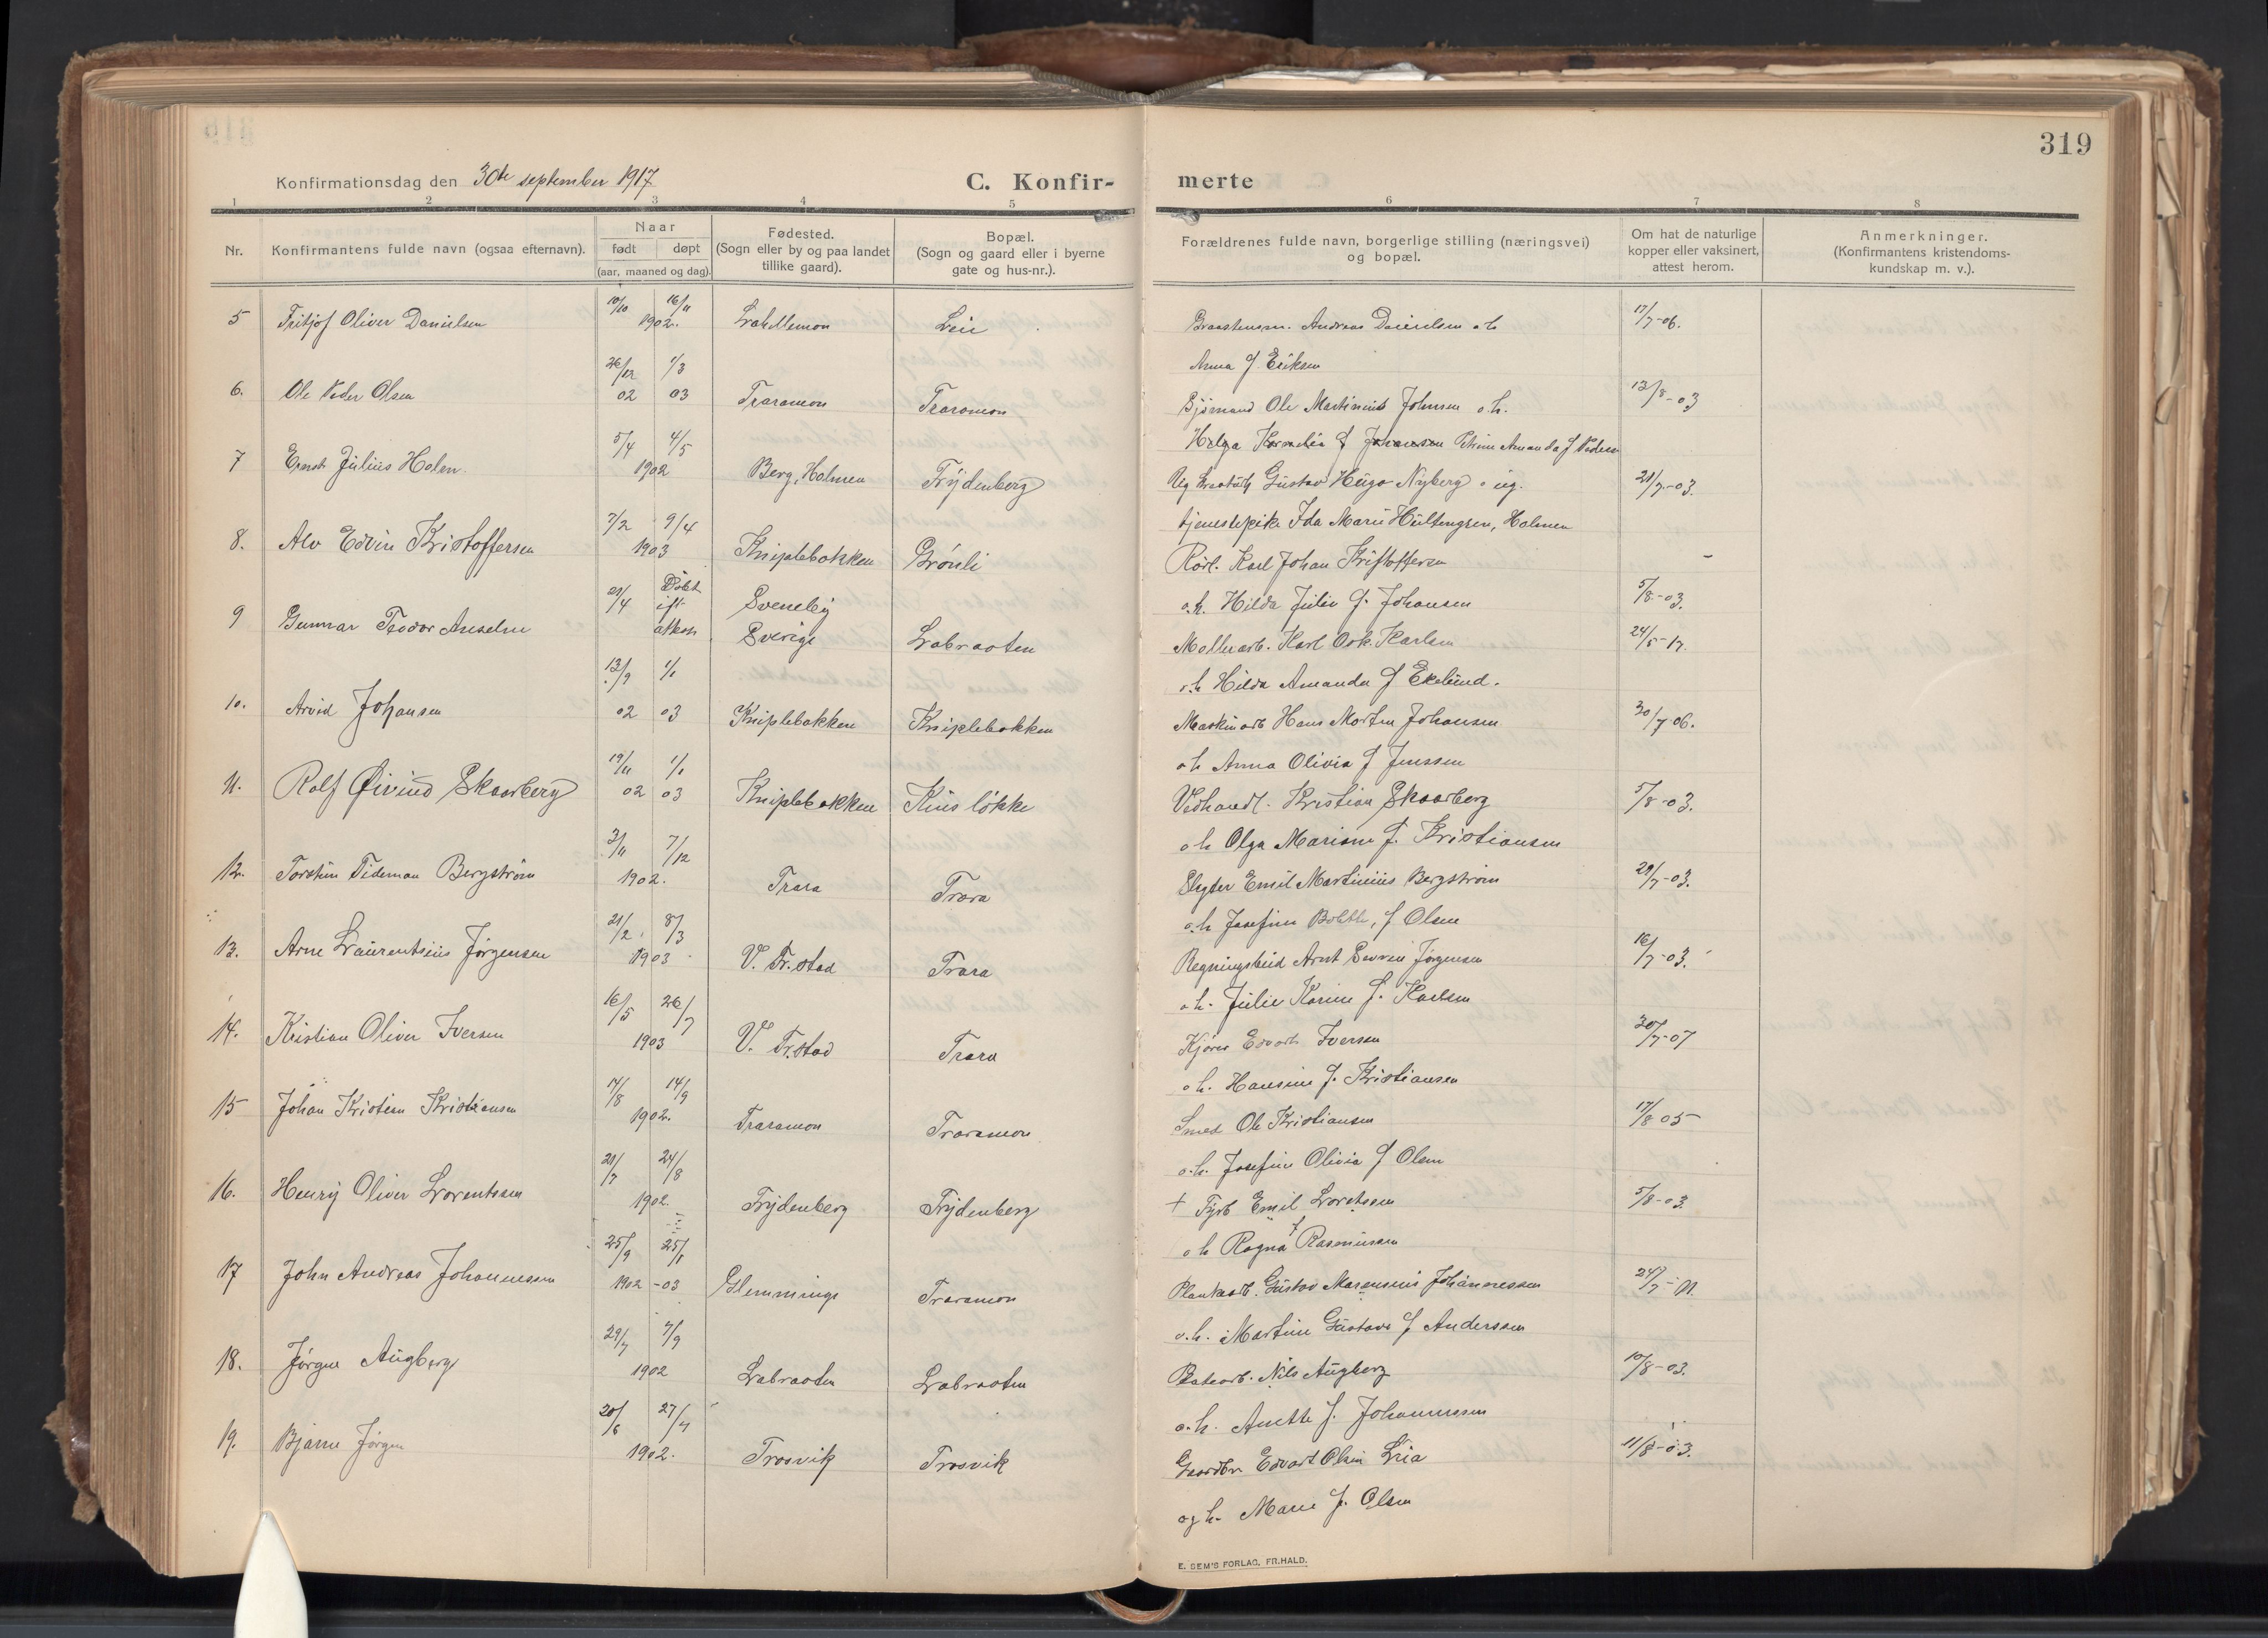 319
Konfirmationsdag den 30te september 1917
C. Konfir-
merte
1 2 3 4 5 6 7 8
Nr.
Konfirmantens fulde navn (ogsaa efternavn).
Naar
født døpt
(aar, maaned og dag).
Fødested.
(Sogn eller by og paa landet
tillike gaard).
Bopæl.
(Sogn og gaard eller i byerne
gate og hus-nr.).
Forældrenes fulde navn, borgerlige stilling (næringsvei)
og bopæl.
Om hat de naturlige
kopper eller vaksinert,
attest herom.
Anmerkninger.
(Konfirmantens kristendoms-
kundskap m. v.).
10/10 16/11
5 Fritjof Oliver Danielsen 1902. Lahellemon Leie Andreas Danielsen o h 17/7-06.
26/12 1/3 Anna f Eriksen
6. Ole Peder Olsen 02 03 Traramon Traramon Sjømand Ole Martinius Johnsen o.h. 12/8-03
5/4 4/5 Helga Kornelia f Johansen Petrine Amanda f Pedersen
7 Ernst Julius Holm 1902 Berg, Holmen Frydenberg Ug Gustav Hugo Nyberg o ug. 21/7-03.
7/2 9/4 tjenestepike Ida Marie Hultengren, Holmen
8. Alv Edvin Kristoffersen 1903 Kniplebakken Grønli Rørl. Karl Johan Kristoffersen -
21/4 Døbt ifl. attest Sveneby o.h. Hilda Julie f. Johansen 5/8-03.
9 Gunnar Teodor Anselm Sverige Labraaten Møllearb. Karl Osk. Karlsen 24/5-17.
13/9 1/1 o.h Hilda Amanda f Ekelund.
10. Arvid Johansen 02 03 Kniplebakken Kniplebakken Maskinarb Hans Morten Johansen 30/7 06.
19/11 1/1 o h Anna Olivia f Jenssen
11. Rolf Øivind Skaarberg 02 03 Kniplebakken Kiisløkke Vedhandl. Kristian Skaarberg 5/8-03.
3/11 7/12 o h Olga Mariane f. Kristiansen
12. Torstein Tideman Bergstrøm 1902. Trara Trara Slagter Emil Martinius Bergstrøm 29/7-03.
21/2 8/3 o.h Josefine Bolette, f Olsen
13. Arne Laurentsius Jørgensen 1903 V. Fr.stad Trara Regningsbud Arnt Severin Jørgensen 16/7-03.
16/5 26/7 o h. Julie Karine f. Karlsen
14. Kristian Oliver Iversen 1903 V. Fr.stad Trara Kjører Edvart Iversen 30/7-07
17/8 14/9 o h. Hansine f. Kristiansen
15 Johan Kristian Kristiansen 1902. Traramon Traramon Smed Ole Kristiansen 17/8 05
21/7 24/8 o.h. Josefine Olivia f Olsen
16. Henry Oliver Lorentsen 1902. Frydenberg Frydenberg + Fyrb Emil Lorentsen 5/8-03
25/9 25/1 o h Ragna f Rasmussen
17 John Andreas Johannessen 1902 -03 Glemminge Traramon Plankearb. Gustav Marensius Johannessen 24/7-11.
29/7 7/9 o.h. Martine Gustava f Anderssen
18. Jørgen Augberg 1902 Labraaten Labraaten Nils Augberg 10/8-03.
20/6 27/7 o.h. Anette f. Johannessen
19. Bjarne Jørgen 1902. Trosvik Trosvik Gaardbr Edvart Olsen Lria 11/8-03.
og h. Marie f. Olsen
E. SEM'S FORLAG, FR.HALD.